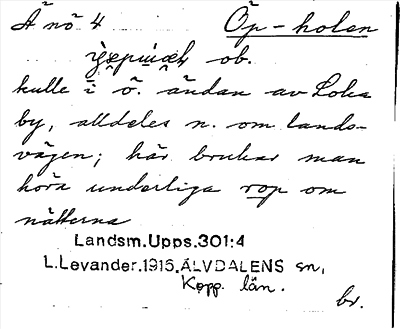 Å nö 4 Öp-holen
ob.
kulle i ö. ändan av Loka
by, alldeles n. om lands-
vägen; här brukar man
höra underliga rop om
nätterna
Landsm.Upps.301:4
L.Levander.1915.ÄLVDALENS sn,
Kopp. län.
br.